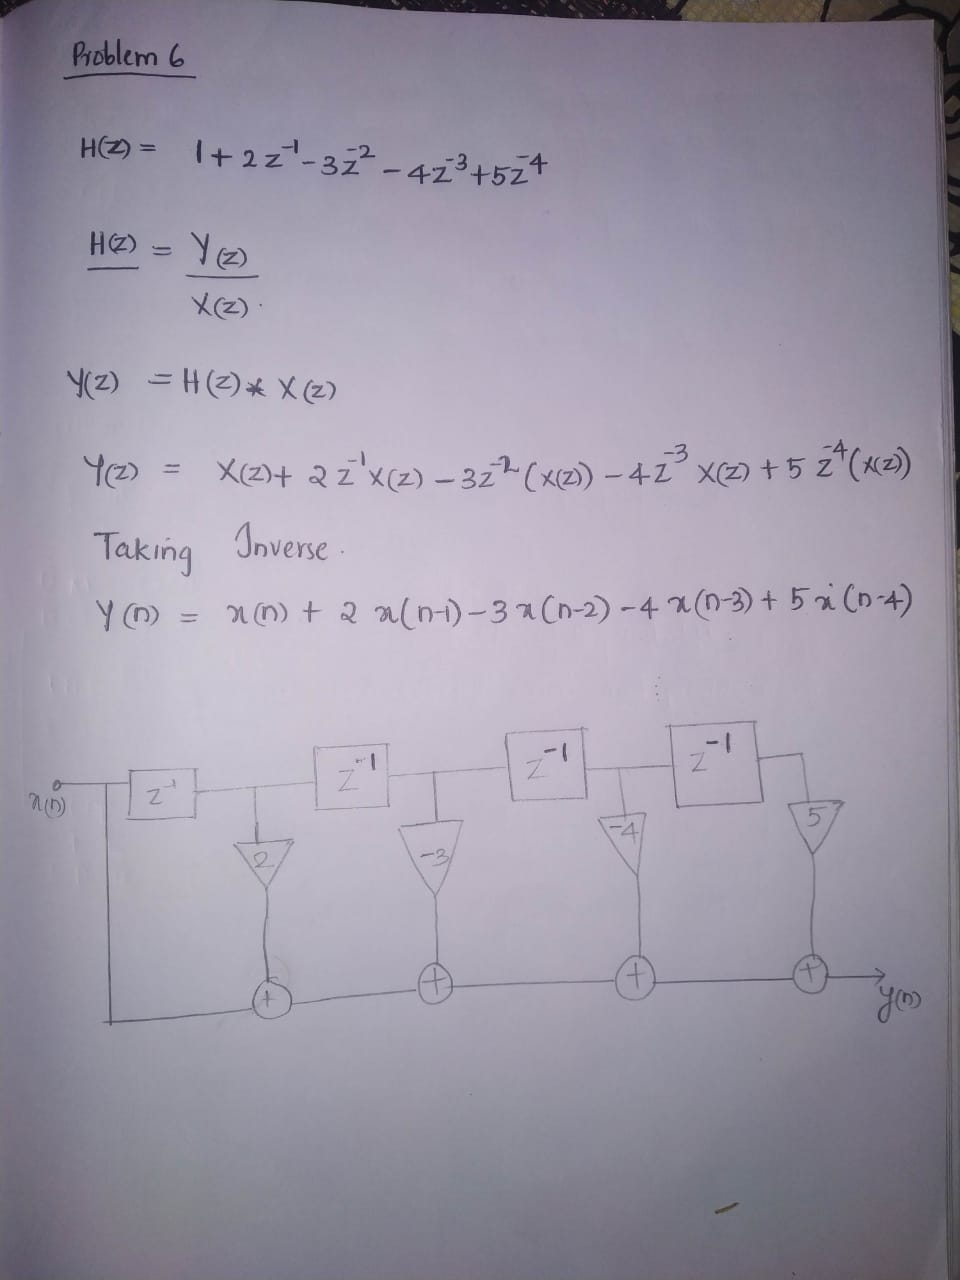 Problem 6
H(Z) = 1 + 2z⁻¹ - 3z⁻² - 4z⁻³ + 5z⁻⁴
H(Z) = Y(z)
X(z).
Y(z) = H(z) * X(z)
Y(z) = X(z) + 2z⁻¹X(z) - 3z⁻²(X(z)) - 4z⁻³ X(z) + 5z⁻⁴(X(z))
Taking Inverse.
Y(n) = x(n) + 2 x(n-1) - 3 x(n-2) - 4 x(n-3) + 5 x(n-4)
x(n) z⁻¹ z⁻¹ z⁻¹ z⁻¹
2 -3 -4 5
+ + + +
y(n)